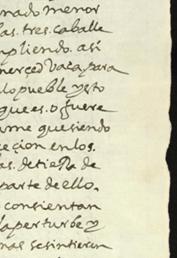 nado menor
las. tres. caballe
mpliendo. asi
merced Vaca para
lo pueble y esto
que es. o fuere
ame que siendo
cecion en los.
as. de tierra de
parte de ello.
consientan
la perturbe y
mas se sintieren